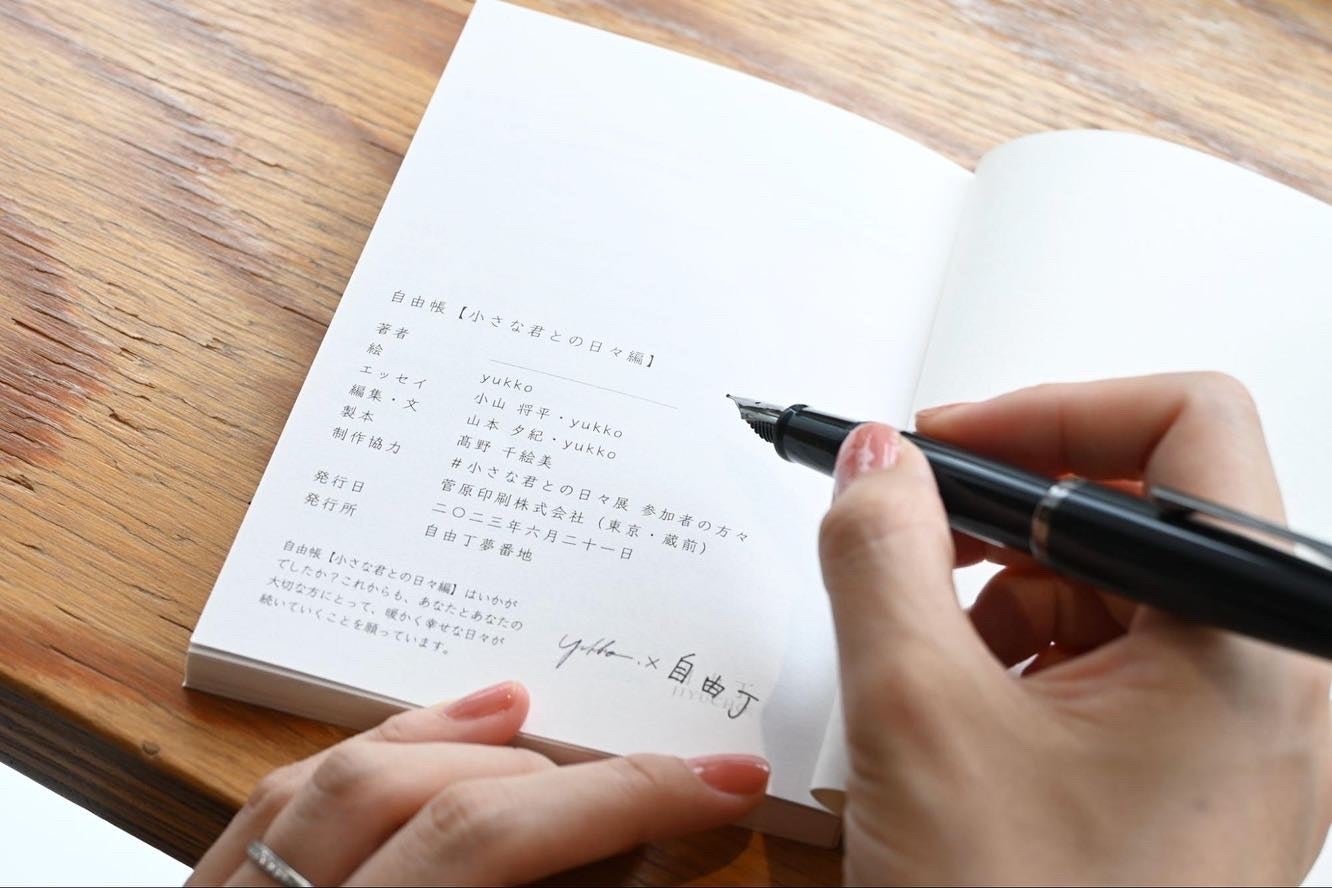 自由帳【小さな君との日々編】
著者
絵 yukko
エッセイ 小山 将平・yukko
編集・文 山本 夕紀・yukko
製本 髙野 千絵美
制作協力 #小さな君との日々展 参加者の方々
菅原印刷株式会社(東京・蔵前)
発行日 二〇二三年六月二十一日
発行所 自由丁夢番地
自由帳【小さな君との日々編】はいかが
でしたか?これからも、あなたとあなたの
大切な方にとって、暖かく幸せな日々が
続いていくことを願っています。
yukko.×自由丁